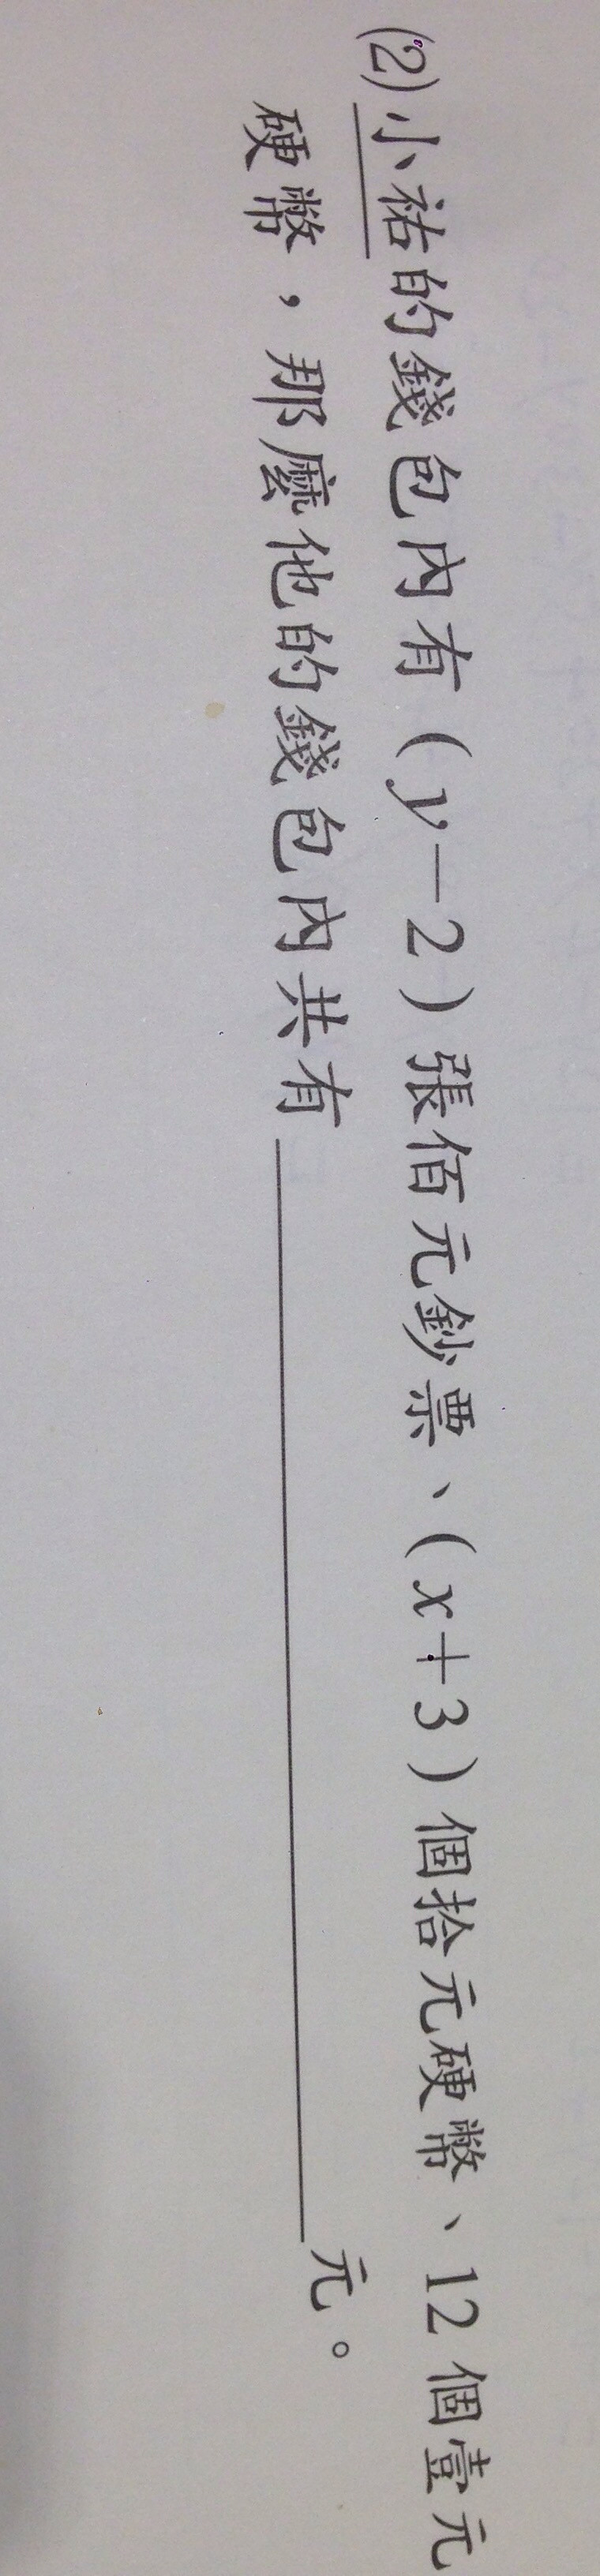 (2)小祐的錢包內有(y－2)張佰元鈔票、(x＋3)個拾元硬幣、12個壹元
硬幣，那麼他的錢包內共有____________________元。